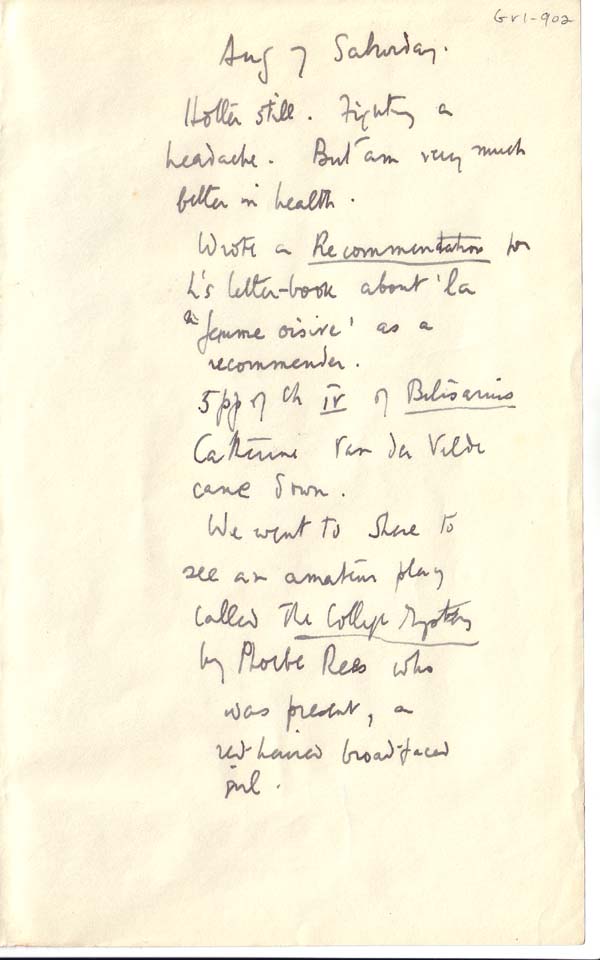 GrI-902
Aug 7 Saturday.
Hotter still. Fighting a
headache. But am very much
better in health.
Wrote a Recommendation for
L's letter-book about 'la
femme oisive' as a
recommender.
5 pp of ch IV of Belisarius
Catherine Van der Velde
came down.
We went to Shere to
see an amateur play
called The College Mystery
by Phoebe Rees who
was present, a
red-haired broad-faced
girl.